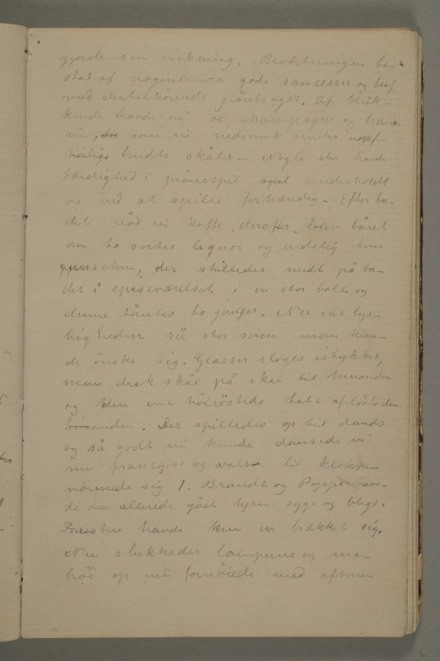 gjorde sin virkning. Beværtningen be-
stod af nogenlunde gode saucesser og beef
med dertilhörende grøntsager. Af drik-
kende havde vi öl, champagne og
vin, som vi nedsmak under
bredte skåler. Nogle der havde
færdighed i pianospil underholdt
os ved at spille firhændig. Efter bor-
det nød vi kaffe, derefter blev båret
om to sorter liquor og endelig kom
punschen, der stilledes midt på bor-
det i spiseværelset i en stor bolle, og
denne tömtes to ganger. Nu var lys-
tigheden så stor som man kun-
de ønske sig. Glasser sloges istykker,
man drak skål på skål til hinanden
og den ene höiröstede tale aflöste den
anden. Der spilledes op til dands
og så godt vi kunde dansede vi
nu française og vals til klokken
nærmede sig 1. Brandt og
de da allerede gået hjem syge og blege.
havde kun en brækket sig.
Nu slukkedes lamperne og man
bröd op vel fornöiede med aftenen